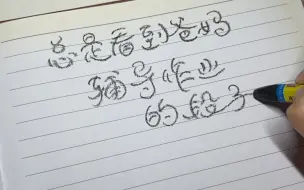 总是看到爸妈
辅导作业
的段子